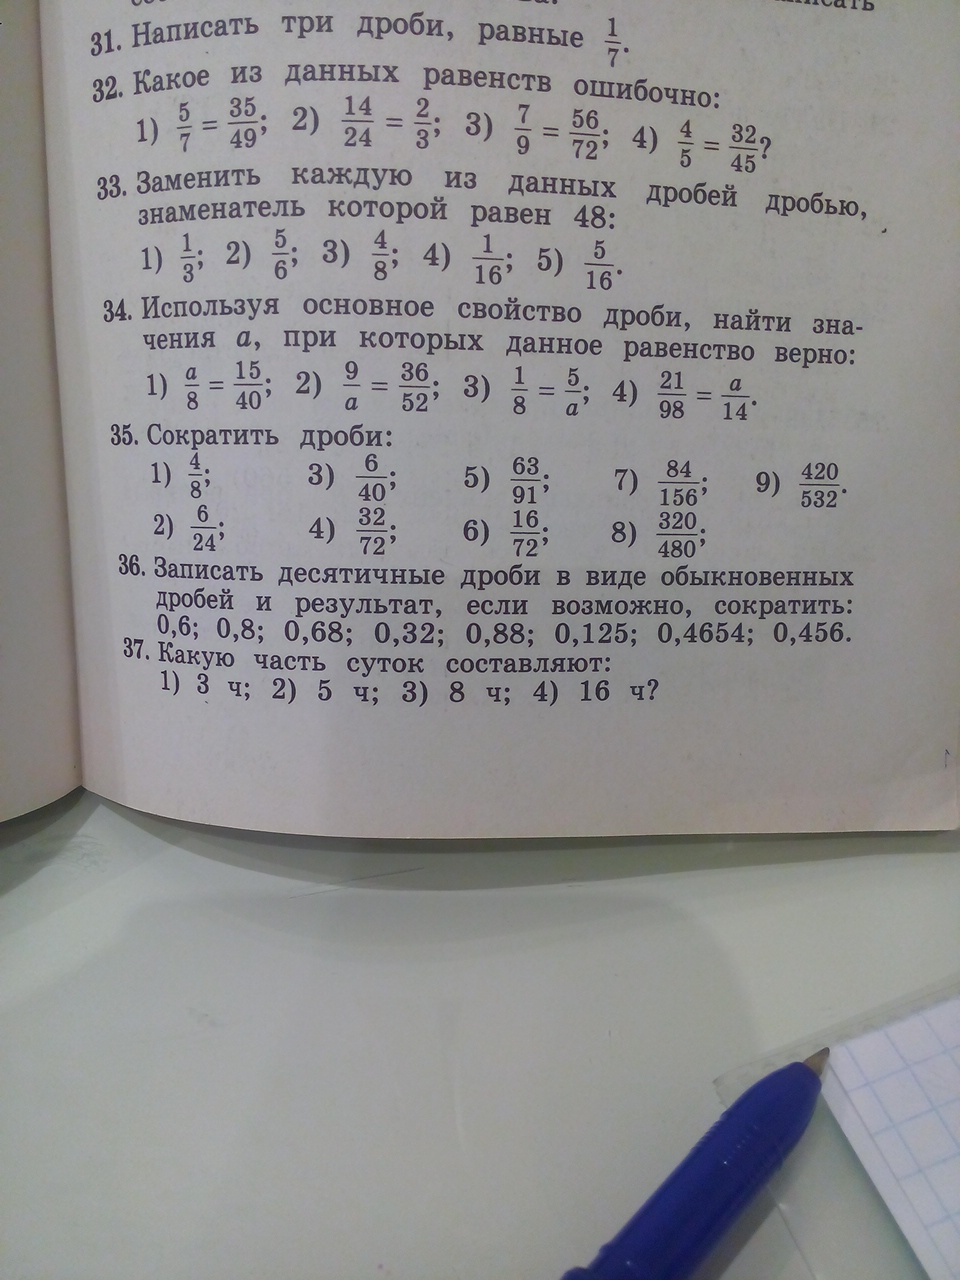 31. Написать три дроби, равные 1/7.
32. Какое из данных равенств ошибочно:
1) 5/7 = 35/49; 2) 14/24 = 2/3; 3) 7/9 = 56/72; 4) 4/5 = 32/45?
33. Заменить каждую из данных дробей дробью,
знаменатель которой равен 48:
1) 1/3; 2) 5/6; 3) 4/8; 4) 1/16; 5) 5/16.
34. Используя основное свойство дроби, найти зна-
чения a, при которых данное равенство верно:
1) a/8 = 15/40; 2) 9/a = 36/52; 3) 1/8 = 5/a; 4) 21/98 = a/14.
35. Сократить дроби:
1) 4/8; 3) 6/40; 5) 63/91; 7) 84/156; 9) 420/532.
2) 6/24; 4) 32/72; 6) 16/72; 8) 320/480;
36. Записать десятичные дроби в виде обыкновенных
дробей и результат, если возможно, сократить:
0,6; 0,8; 0,68; 0,32; 0,88; 0,125; 0,4654; 0,456.
37. Какую часть суток составляют:
1) 3 ч; 2) 5 ч; 3) 8 ч; 4) 16 ч?